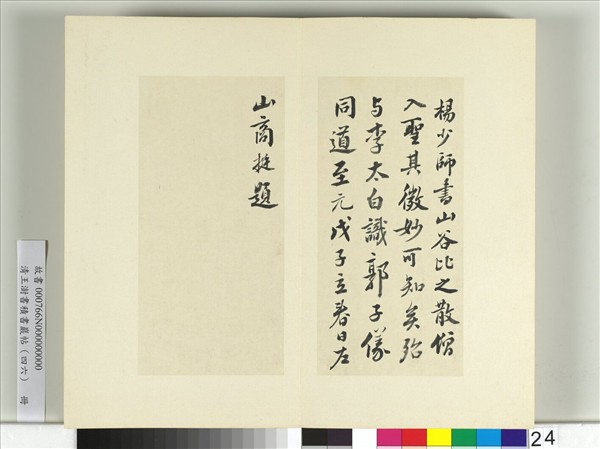 楊少師書山谷比之散僧
入聖其微妙可知矣殆
与李太白識郭子儀
同道至元戊子立春日左
山商挺題
故書000766N000000000
清王澍書積書巖帖（四六） 冊
24